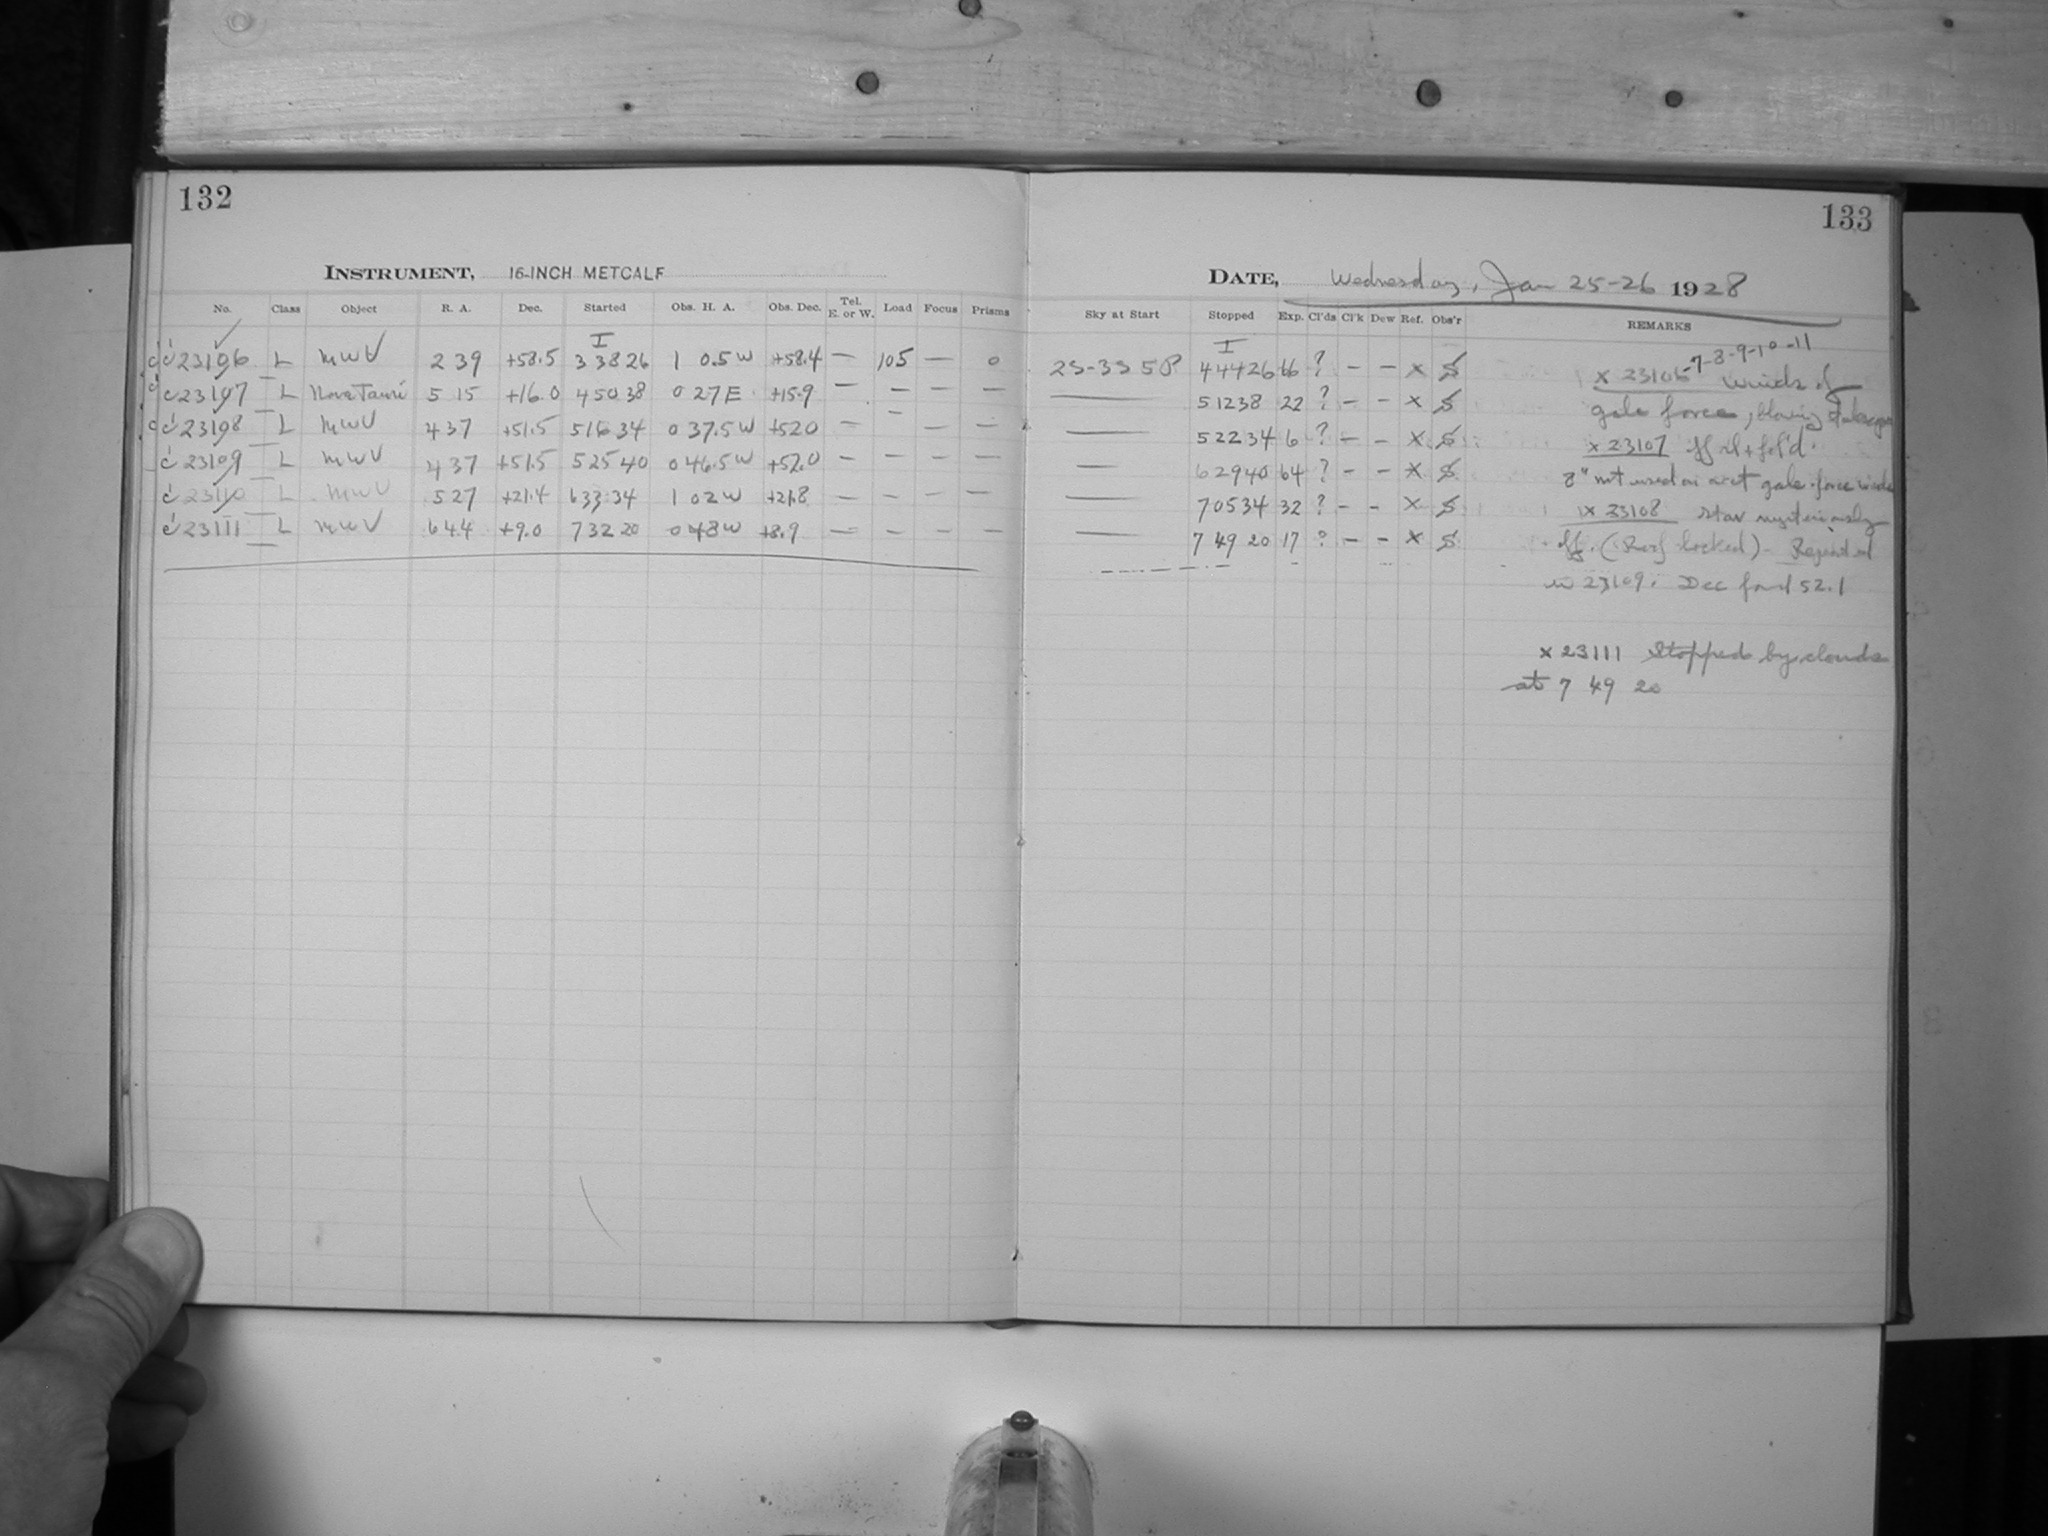 132
INSTRUMENT, 16-INCH METCALF
No. Class Object R. A. Dec. Started Obs. H. A. Obs. Dec. Tel. E. or W. Load Focus Prisms
I
23106 L MWV 2 39 +58.5 3 38 26 1 0.5 W +58.4 — 105 — 0
23107 L Nova Tauri 5 15 +16.0 4 50 38 0 27 E +15.9 — — — —
23108 L MWV 4 37 +51.5 5 16 34 0 37.5 W +52.0 — — — —
23109 L MWV 4 37 +51.5 5 25 40 0 46.5 W +52.0 — — — —
23110 L MWV 5 27 +21.4 6 33 34 1 02 W +21.8 — — — —
23111 L MWV 6 44 +9.0 7 32 20 0 48 W +8.9 — — — —
133
DATE, Wednesday, Jan 25-26 1928
Sky at Start Stopped Exp. Cl'ds Cl'k Dew Ref. Obs'r REMARKS
I
4 44 26 66 ? — — x S
5 12 38 22 ? — — x S
5 22 34 6 ? — — x S
6 29 40 64 ? — — x S
7 05 34 32 ? — — x S
7 49 20 17 ? — — x S
x 23106-7-8-9-10-11 winds of
gale force, blowing
x 23107 off
8" not used on acct gale-force winds
x 23108 star mysteriously
off. (Roof locked) — Repeated
in 23109. Dec found 52.1
x 23111 Stopped by clouds
at 7 49 20